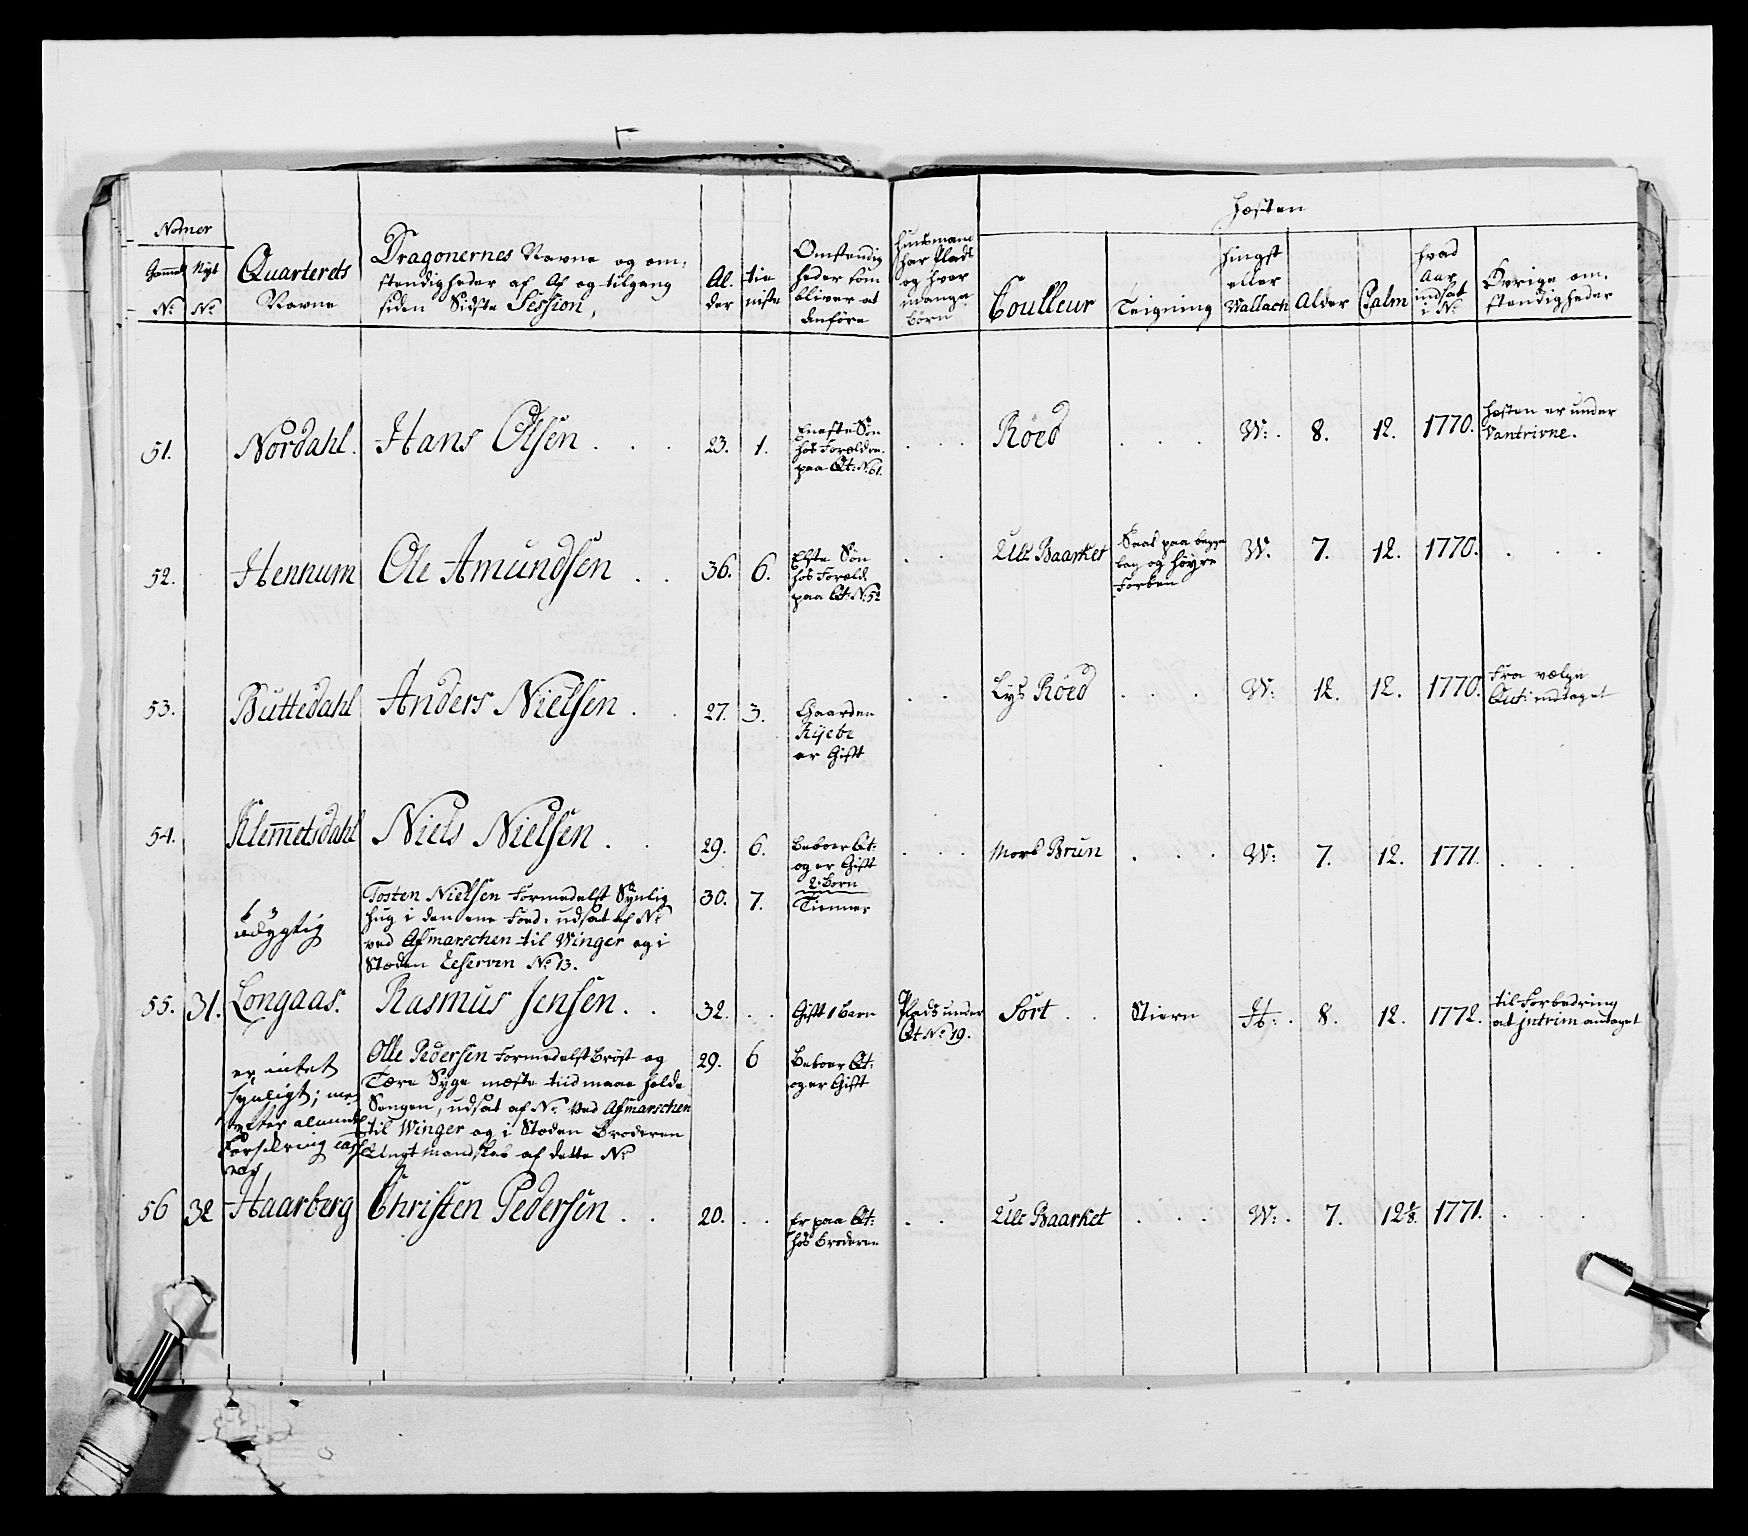 Nomer
Gammel Nyt
No No
Quarterets
Navne
Dragonernes Navne og om-
stendigheder af Af og tilgang
siden Sidste Session,
Al.
der
tie
niste
Omstendig
heder som
bliver at
Anføre
huusmand
har Plads
og hvor
mange
Børn
Hæsten
Coulleur
Teigning
Hingst
eller
Wallach
Alder
Palm
hvad
Aar
indsat
i No
Øvrige om-
stendigheder
51. Nordahl. Hans Olsen . . . 23. 1.
Eneste Søn
hos Foreldre.
paa Qt: No 61.
. . . Röed . . . W: . 8. 12. 1770.
Hæsten er under
Vantrivne.
52. Hennum Ole Amundsen . . 36. 6.
Elste Søn
hos Foreld.
paa Qt: No 52
. . Ulr Baarket
paa begge
bag og höyre
Forbeen
W. 7. 12. 1770. . . .
53. Buttedahl Anders Nielsen . . 27. 3.
Gaarden
Rijebr
er Gift
. . Lys Röed . . . W: 12. 12. 1770.
Fra vælge
Qut: indtaget
54. Klemetsdahl Niels Nielsen . . 29. 6.
Beboer Qt:
og er Gift
2: Børn
. . . Mork Brun . . . W: 7. 12. 1771. . . .
udygtig
Tosten Nielsen Formedelst Synlig
hug i den ene Foed: udsat af No
ved Afmarschen til Winger og i
Steden Reserven No 13.
30. 7. Tienner
55. 31. Longaas. Rasmus Jensen . . 32. . . Gift 1 barn
Plads under
Qt No 19.
Sort . . Stiern H: . 8. 12. 1772.
til Forbedring
at jntrim antaget
er intet
synligt; men
efter almindel
Forsikring
Olle Pedersen Formedelst Bröst og
Tære Syge meeste tiid maae holde
Sengen, udsat af No Ved Afmarschen
til Winger og i Steden Broderen
Ungt mandskab af dette No
29. 6
Beboer Qt:
og er Gift
56 32 Haarberg Christen Pedersen . . 20. . .
Er paa Qt:
hos Broderen
. . Ulr Baarket . . . W: . 7. 12 2/8. 1771. . . .